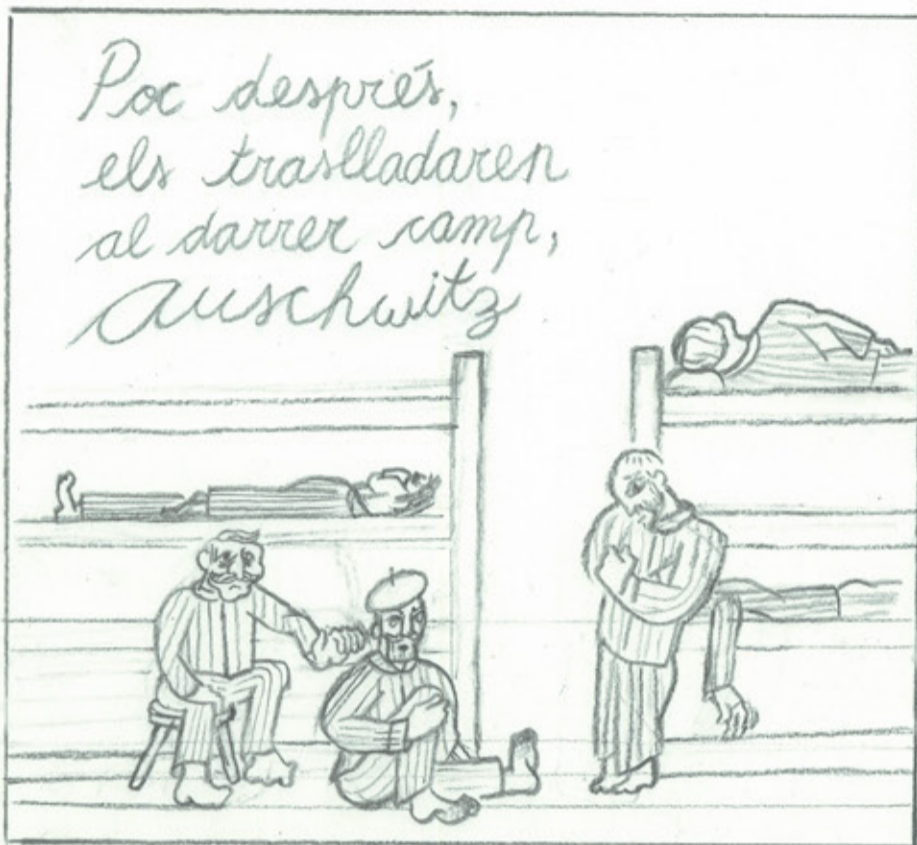 Poc després,
els traslladaren
al darrer camp,
Auschwitz